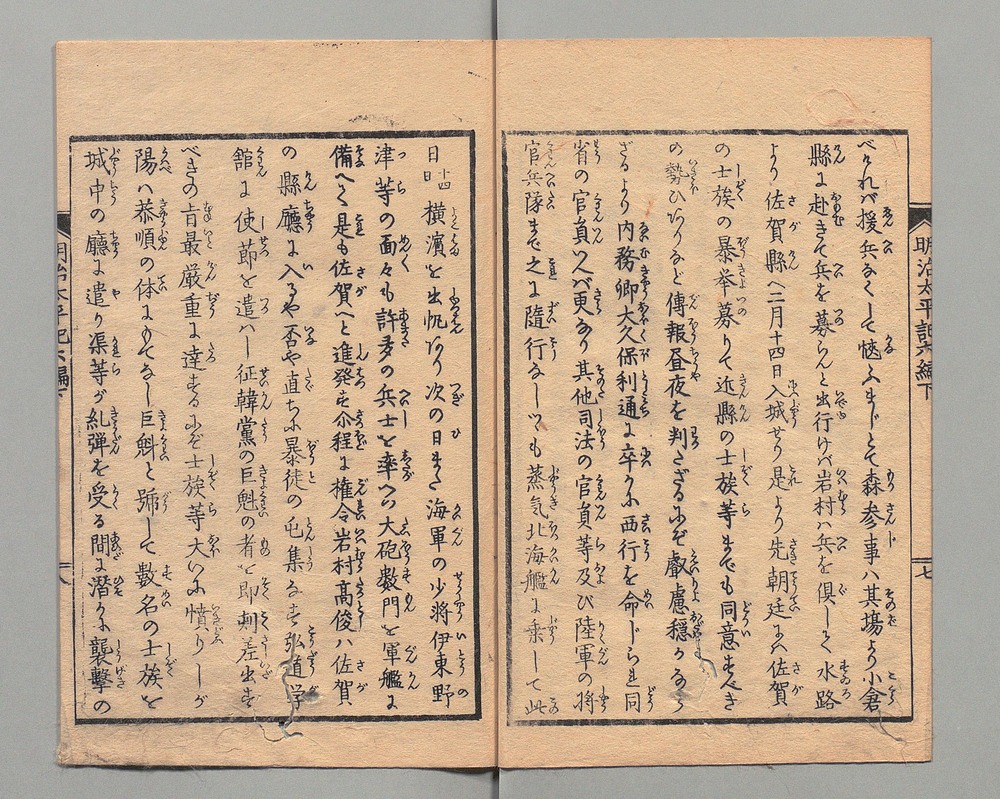 べければ援兵なくして愜ふまじとて森参事ハ其塲より小倉
縣に赴きて兵を募らんと出行けバ岩村ハ兵を倶して水路
より佐賀縣へ二月十四日入城せり是より先朝廷にハ佐賀
の士族の暴挙募りて近縣の士族等までも同意すべき
の勢ひなりなど傳報昼夜を判たざるにぞ叡慮穏かなら
ざるより内務卿大久保利通に卒かに西行を命じられ同
省の官員ハいへバ更なり其他司法の官員等及び陸軍の将
官兵隊まで之に隨行なしつゝも蒸気北海艦に乗して此
日十四日横濱を出帆なり次の日また海軍の少将伊東野
津等の面々も許多の兵士を率へつ大砲數門を軍艦に
備へて是も佐賀へと進発す尒程に権令岩村高俊ハ佐賀
の縣廳に入るや否や直ちに暴徒の屯集なる弘道学
舘に使節を遣ハし征韓黨の巨魁の者を即刻差出す
べきの旨最厳重に達するにぞ士族等大いに憤りしが
陽ハ恭順の体にもてなし巨魁と號して數名の士族を
城中の廳に遣り渠等が糺弾を受る間に潜かに襲撃の
明治太平記六編下
七
明治太平記六編下
八